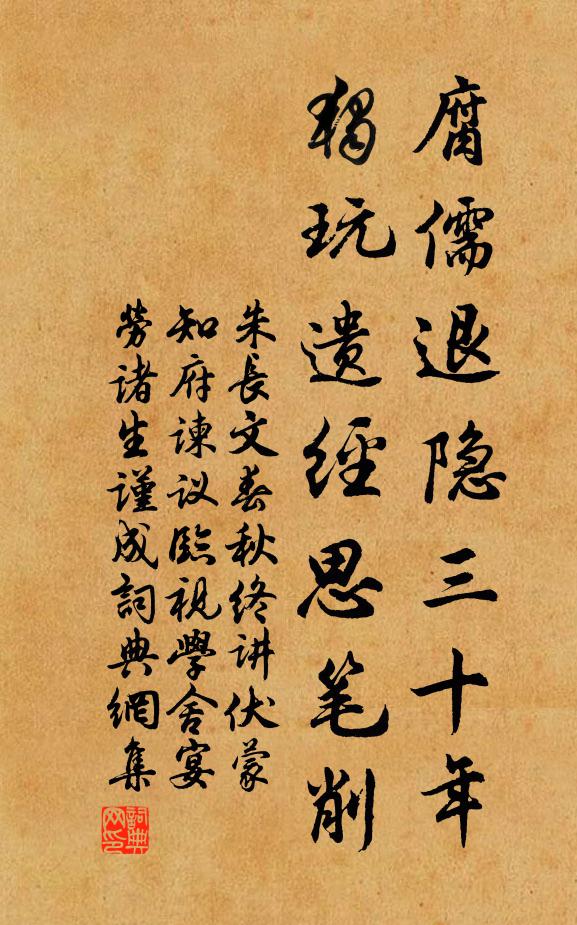 腐儒退隐三十年
独玩遗经思笔削
朱長文春秋终讲伏蒙
知府諫议臨視學舍宴
劳诸生谨成詞典網集
詞典网印